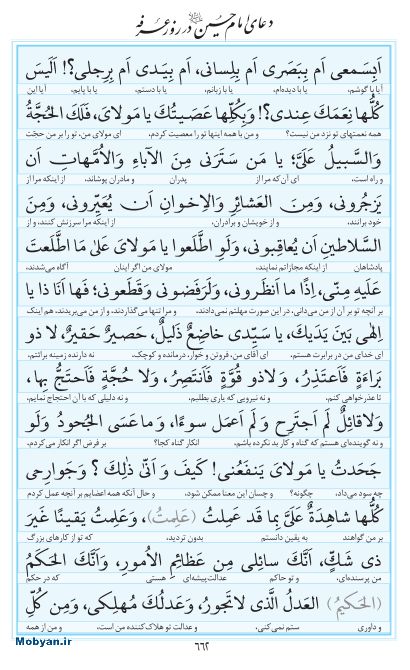 دعای امام حسین علیه‌السلام در روز عرفه
اَبِسَمعی اَم بِبَصَری اَم بِلِسانی، اَم بِیَدی اَم بِرِجلی؟! اَلَیسَ
آیا با گوشم، یا با دیده‌ام، یا با زبانم، یا با دستم، یا با پایم، آیا این
کُلُّها نِعَمَكَ عِندی؟! وَبِکُلِّها عَصَیتُكَ یا مَولایَ، فَلَكَ الحُجَّةُ
همه نعمتهای تو نزد من نیست؟ و من با همه اینها تو را معصیت کردم، ای مولای من، تو را بر من حجت
وَالسَّبیلُ عَلَیَّ؛ یا مَن سَتَرَنی مِنَ الآباءِ وَالاُمَّهاتِ اَن
و راه است، ای آن که مرا از پدران و مادران پوشاند، از اینکه مرا از
یَزجُرونی، وَمِنَ العَشائِرِ وَالاِخوانِ اَن یُعَیِّرونی، وَمِنَ
خود برانند، و از خویشان و برادران، از اینکه مرا سرزنش کنند، و از
السَّلاطینِ اَن یُعاقِبونی، وَلَوِ اطَّلَعوا یا مَولایَ عَلیٰ مَا اطَّلَعتَ
پادشاهان از اینکه مجازاتم نمایند، مولای من اگر اینان آگاه می‌شدند،
عَلَیهِ مِنّی، اِذًا ما اَنظَرونی، وَلَرَفَضونی وَقَطَعونی؛ فَها اَنَا ذا یا
بر آنچه تو بر آن از من می‌دانی، در این صورت مهلتم نمی‌دادند، و مرا تنها می‌گذاردند، و از من می‌بریدند، هم اینک
اِلٰهی بَینَ یَدَیكَ، یا سَیِّدی خاضِعٌ ذَلیلٌ، حَصیرٌ حَقیرٌ، لا ذو
ای خدای من در برابرت هستم، ای آقای من، فروتن و خوار، درمانده و کوچک، نه دارنده زمینه برائتم،
بَراءَةٍ فَاَعتَذِرُ، وَلاذو قُوَّةٍ فَاَنتَصِرُ، وَلا حُجَّةٍ فَاَحتَجُّ بِها،
تا عذرخواهی کنم، و نه نیرویی که یاری بطلبم، و نه دلیلی که با آن احتجاج نمایم،
وَلاقائِلٌ لَم اَجتَرِح وَ لَم اَعمَل سوءًا، وَماعَسَی الجُحودُ وَلَو
و نه گوینده‌ای هستم که گناه و کار بد نکرده باشم، انکار گناه کجا؟ بر فرض اگر انکار می‌کردم،
جَحَدتُ یا مَولایَ یَنفَعُنی! کَیفَ وَ اَنّی ذٰلِكَ ؟ وَجَوارِحی
چه سود می‌داد، چگونه؟ و چسان این معنا ممکن شود، و حال آنکه همه اعضایم بر آنچه عمل کردم
کُلُّها شاهِدَةٌ عَلَیَّ بِما قَد عَمِلتُ (عَلِمتُ)، وَعَلِمتُ یَقینًا غَیرَ
بر من گواهند به یقین دانستم بدون تردید، که تو از کارهای بزرگ
ذی شَكٍّ، اَنَّكَ سائِلی مِن عَظائِمِ الاُمورِ، وَاَنَّكَ الحَکَمُ
من پرسنده‌ای، و تو حاکم عدالت‌پیشه‌ای هستی که در حکم
(الحَکیمُ) العَدلُ الَّذی لاتَجورُ، وَعَدلُكَ مُهلِکی، وَمِن کُلِّ
و داوری ستم نمی‌کنی، و عدالت تو هلاک‌کننده من است، و من از همه
۶۶۲
Mobyan.ir